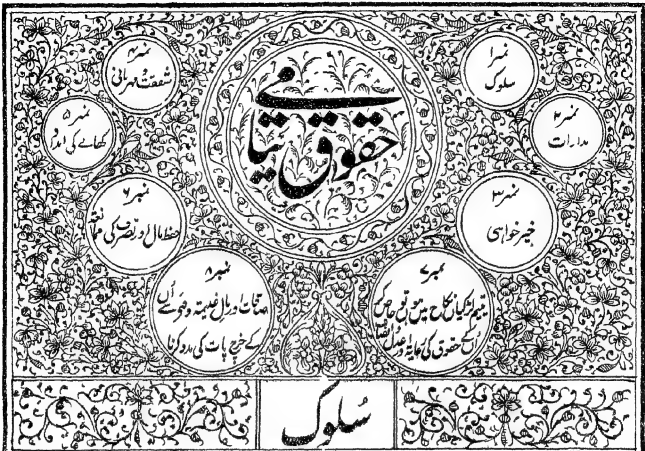 حقوق یتامیٰ
نمبر ۱
سلوک
نمبر ۲
مدارات
نمبر ۳
خیر خواہی
نمبر ۴
شفقت و مہربانی
نمبر ۵
کھانے کی امداد
نمبر ۶
حفظ مال اور تصرف کی
نمبر ۷
یتیم لڑکیاں نکاح میں ہوں تو خاص کر
کے حقوق کی رعایۃ اور عدل
نمبر ۸
صدقات اور مال غنیمۃ وغیرہ سے اُن
کے خرچ پات کی مدد کرنا
سُلوک